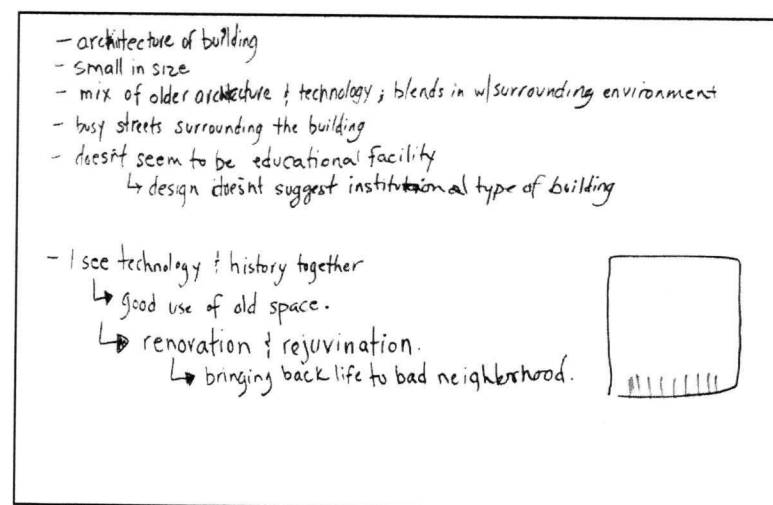 - architecture of building
- small in size
- mix of older architecture & technology; blends in w/surrounding environment
- busy streets surrounding the building
- doesn't seem to be educational facility
↳ design doesnt suggest institutional type of building
- I see technology & history together
↳ good use of old space.
↳ renovation & rejuvination.
↳ bringing back life to bad neighborhood.